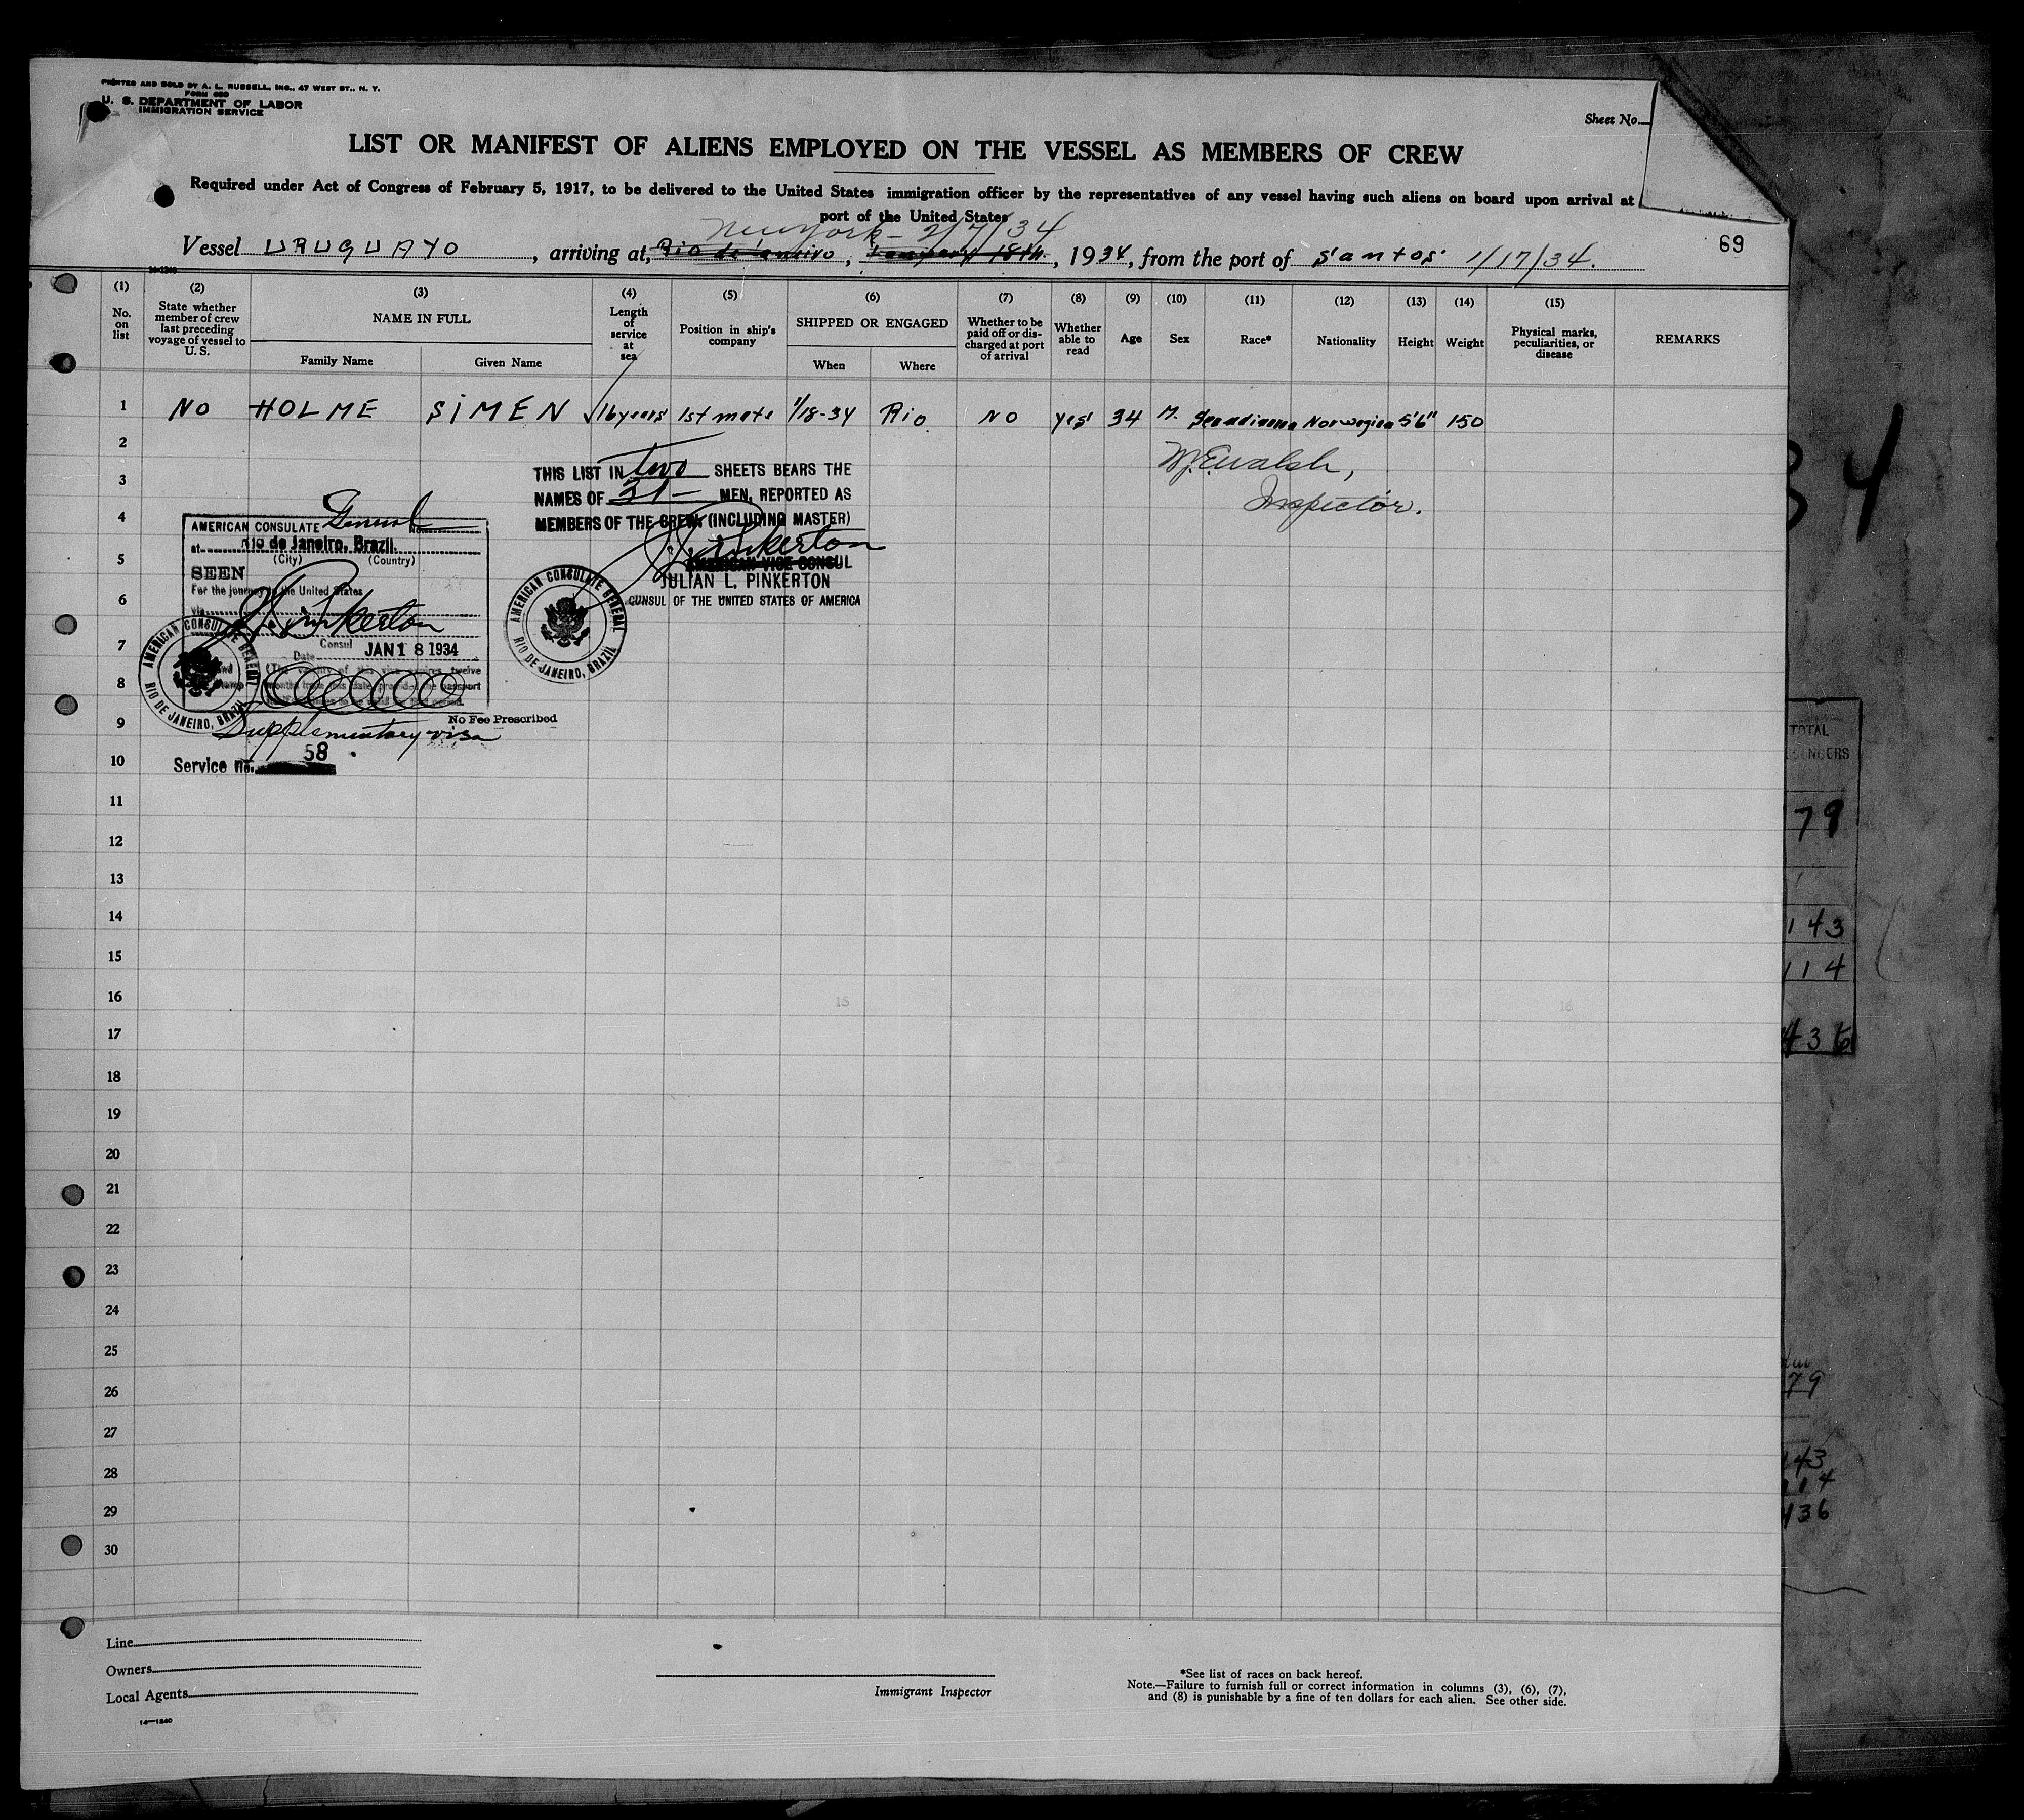 PRINTED AND SOLD BY A. L. RUSSELL, INC., 47 WEST ST., N. Y.
FORM 680
U. S. DEPARTMENT OF LABOR
IMMIGRATION SERVICE
Sheet No.
LIST OR MANIFEST OF ALIENS EMPLOYED ON THE VESSEL AS MEMBERS OF CREW
Required under Act of Congress of February 5, 1917, to be delivered to the United States immigration officer by the representatives of any vessel having such aliens on board upon arrival at
port of the United States
New York - 2/7/34
69
Vessel URUGUAYO, arriving at, Rio de Janeiro, January 18th, 1934, from the port of Santos 1/17/34.
14-1240
(1) (2) (3) (4) (5) (6) (7) (8) (9) (10) (11) (12) (13) (14) (15)
No. on list
State whether member of crew last preceding voyage of vessel to U. S.
NAME IN FULL
Family Name
Given Name
Length of service at sea
Position in ship's company
SHIPPED OR ENGAGED
When
Where
Whether to be paid off or discharged at port of arrival
Whether able to read
Age
Sex
Race*
Nationality
Height
Weight
Physical marks, peculiarities, or disease
REMARKS
1 NO HOLME SIMEN 16 years 1st mate 1/18-34 Rio NO yes 34 M. Norwegian 5'6" 150
2
W. E. Walsh,
Inspector.
3
THIS LIST IN two SHEETS BEARS THE
NAMES OF 31- MEN, REPORTED AS
MEMBERS OF THE CREW, (INCLUDING MASTER)
J. Pinkerton
AMERICAN VICE CONSUL
JULIAN L. PINKERTON
CUNSUL OF THE UNITED STATES OF AMERICA
AMERICAN CONSULATE GENERAL
RIO DE JANEIRO, BRAZIL
4
AMERICAN CONSULATE General No.
at Rio de Janeiro, Brazil.
(City) (Country)
5
SEEN
For the journey to the United States
6
via
J. Pinkerton
Consul
7
Date JAN 18 1934
AMERICAN CONSULATE GENERAL
RIO DE JANEIRO, BRAZIL
8
9
No Fee Prescribed
Supplementary visa
10
Service no. 58
11
12
13
14
15
16
17
18
19
20
21
22
23
24
25
26
27
28
29
30
Line
Owners
Local Agents
14—1240
Immigrant Inspector
*See list of races on back hereof.
Note.—Failure to furnish full or correct information in columns (3), (6), (7),
and (8) is punishable by a fine of ten dollars for each alien. See other side.
4
TOTAL
79
143
114
436
79
43
114
436